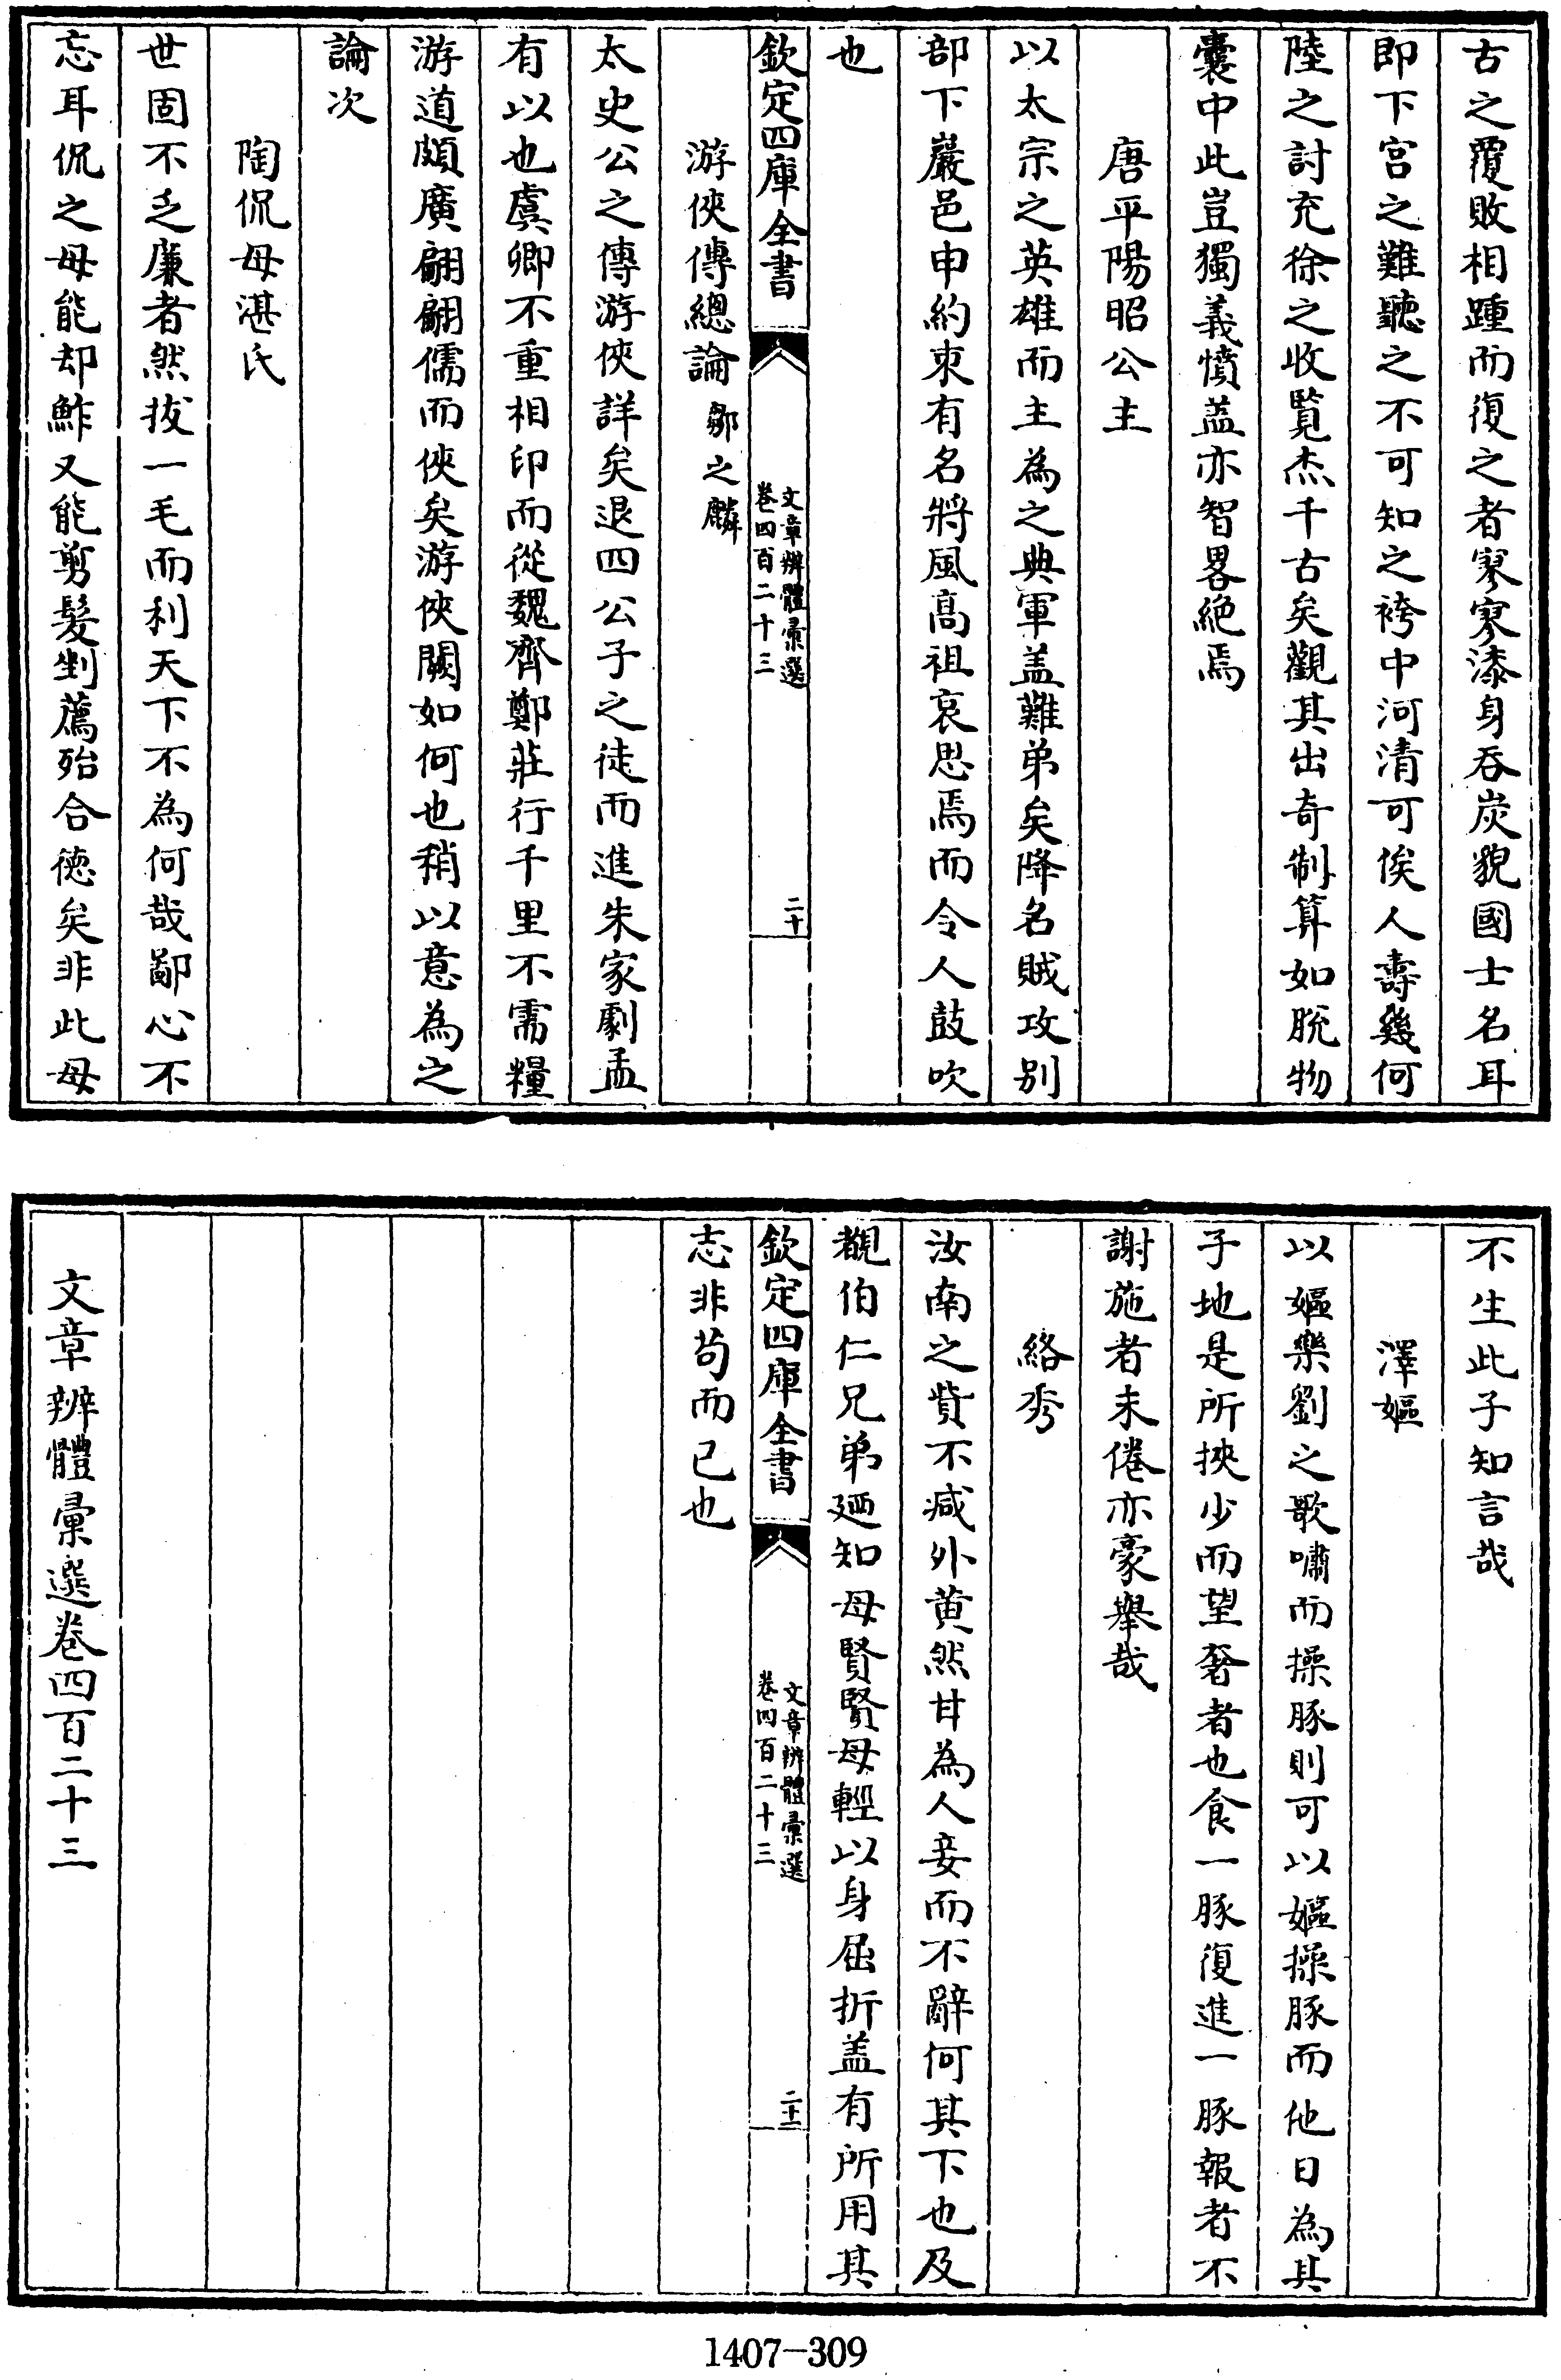 古之覆敗相踵而復之者寥寥漆身吞炭貌國士名耳
即下宫之難聽之不可知之袴中河清可俟人壽幾何
陸之討充徐之收覧杰千古矣觀其出奇制算如脱物
囊中此豈獨義憤盖亦智畧絶焉
唐平陽昭公主
以太宗之英雄而主為之典軍盖難弟矣降名賊攻别
部下嚴邑申約束有名將風髙祖哀思焉而令人鼓吹
也
欽定四庫全書
文章辨體彚選
卷四百二十三
二十
游俠傳總論 鄒之麟
太史公之傳游俠詳矣退四公子之徒而進朱家劇孟
有以也虞卿不重相印而從魏齊鄭莊行千里不需糧
游道頗廣翩翩儒而俠矣游俠闕如何也稍以意為之
論次
陶侃母湛氏
世固不乏廉者然拔一毛而利天下不為何哉鄙心不
忘耳侃之母能却鮓又能剪髮剉薦殆合徳矣非此母
不生此子知言哉
澤嫗
以嫗樂劉之歌嘯而操豚則可以嫗操豚而他日為其
子地是所挾少而望奢者也食一豚復進一豚報者不
謝施者未倦亦豪舉哉
絡秀
汝南之貲不减外黄然甘為人妾而不辭何其下也及
覩伯仁兄弟廼知母賢賢母輕以身屈折盖有所用其
欽定四庫全書
文章辨體彚選
卷四百二十三
二十一
志非苟而已也
文章辨體彚選卷四百二十三
1407-309